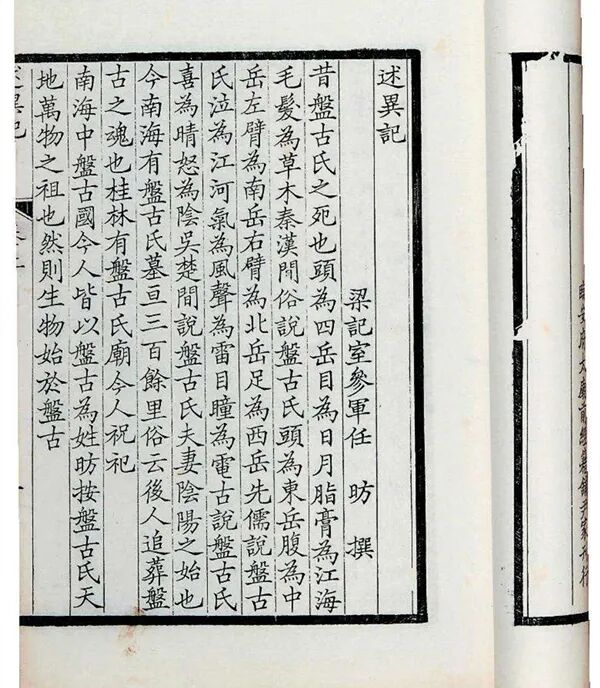 述異記
梁記室參軍任 昉 撰
昔盤古氏之死也頭為四岳目為日月脂膏為江海
毛髮為草木秦漢間俗說盤古氏頭為東岳腹為中
岳左臂為南岳右臂為北岳足為西岳先儒說盤古
氏泣為江河氣為風聲為雷目瞳為電古說盤古氏
喜為晴怒為陰吳楚間說盤古氏夫妻陰陽之始也
今南海有盤古氏墓亘三百餘里俗云後人追葬盤
古之魂也桂林有盤古氏廟今人祝祀
南海中盤古國今人皆以盤古為姓昉按盤古氏天
地萬物之祖也然則生物始於盤古
述異記